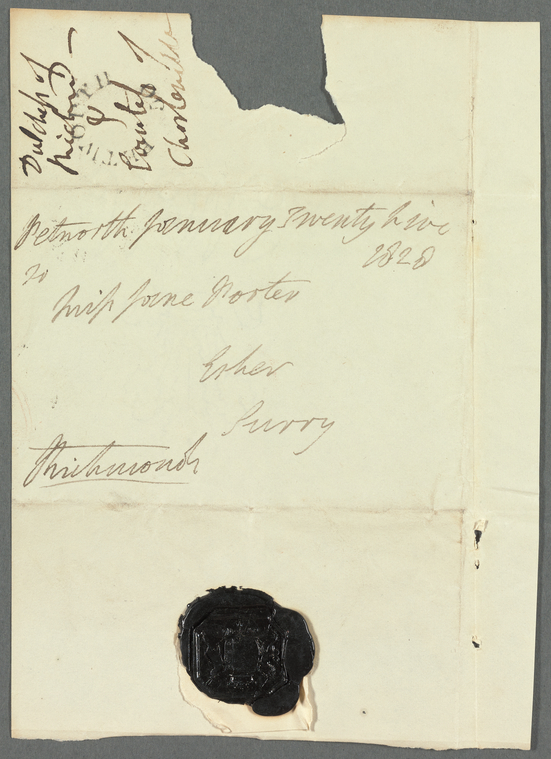 Dutchess of
Richmond
&
Countess of
Charleville
Petworth January Twenty five
1828
To
Miss Jane Porter
Esher
Surry
Richmond